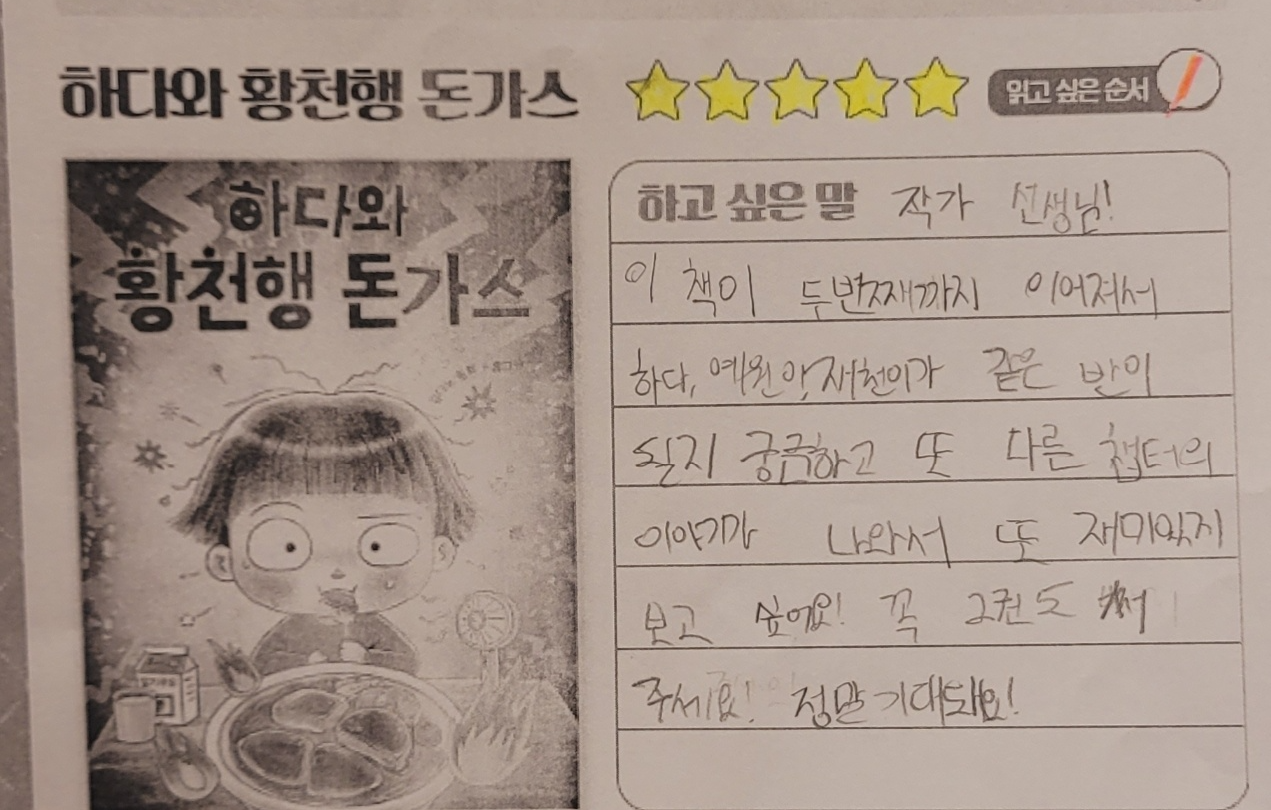 하다와 황천행 돈가스
읽고 싶은 순서
하다와
황천행 돈가스
하고 싶은 말 작가 선생님!
이 책이 두번째까지 이어져서
하다, 예원이, 재헌이가 같은 반이
될지 궁금하고 또 다른 챕터의
이야기가 나와서 또 재미있지
보고 싶어요! 꼭 2권도 써
주세요! 정말 기대돼요!